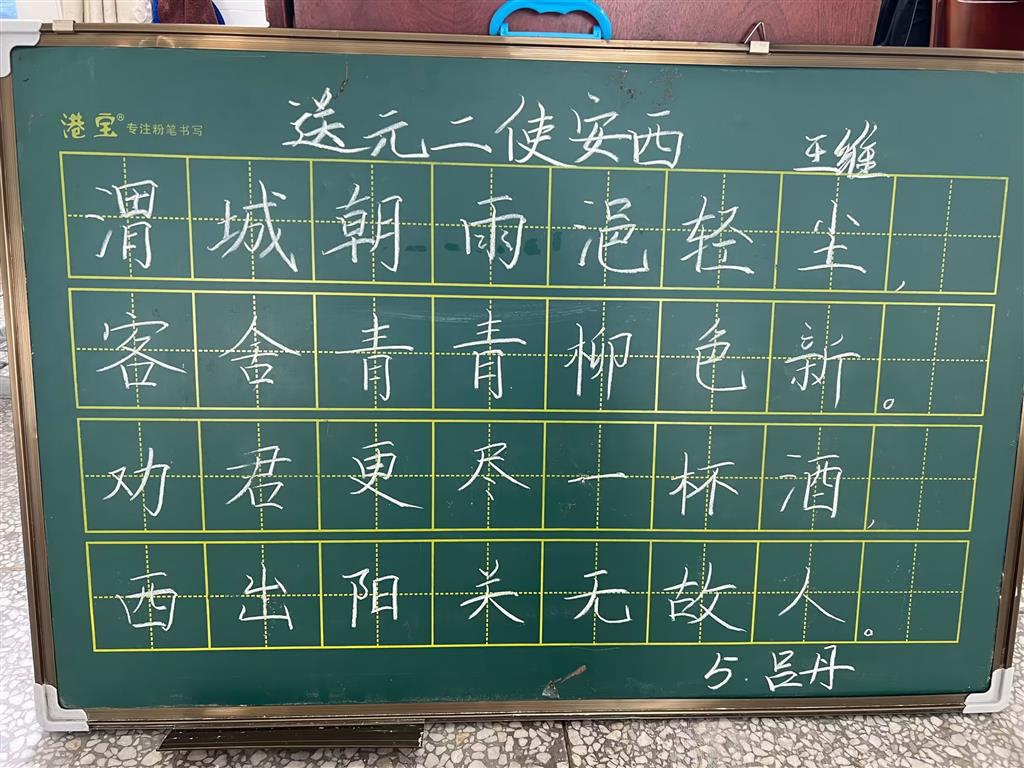 港宝® 专注粉笔书写
送元二使安西 王维
渭城朝雨浥轻尘，
客舍青青柳色新。
劝君更尽一杯酒，
西出阳关无故人。
5. 吕丹